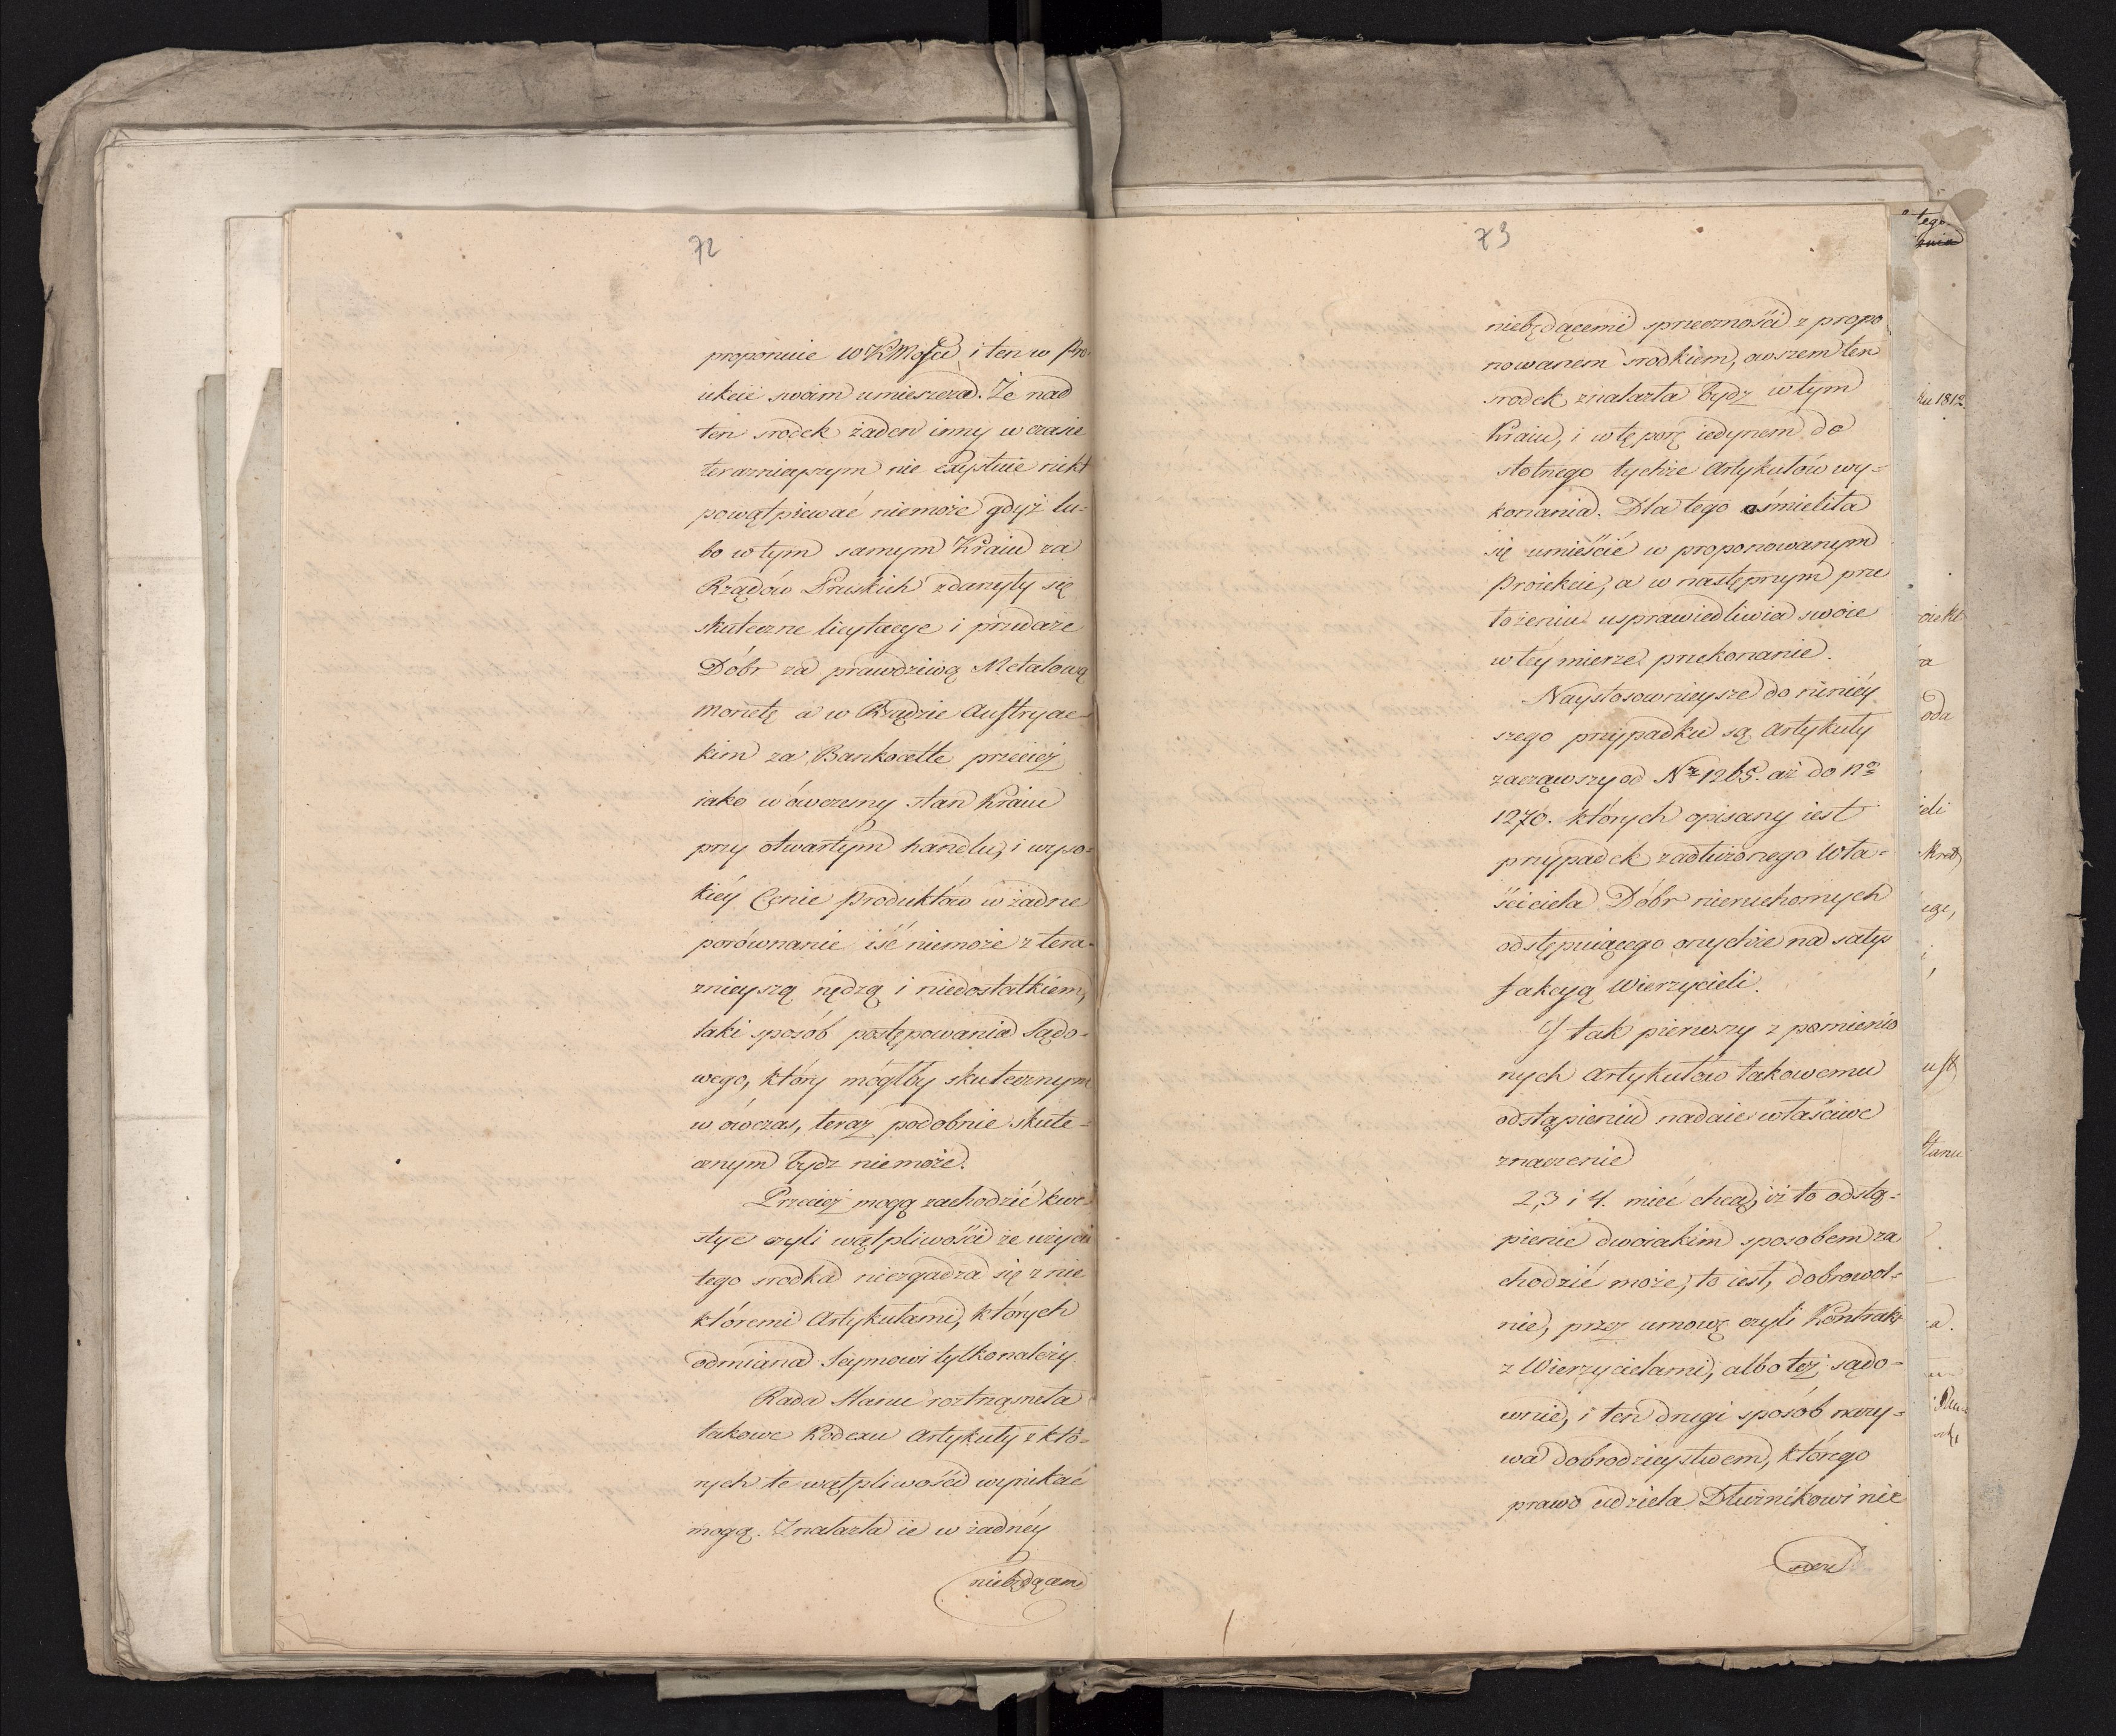 72
proponuie WKMości i ten w Pro-
iekcie swoim umieszcza. Że nad
ten srodek żaden inny w czasie
teraznieyszym nie existuie nikt
powątpiewać niemoże gdyż lu-
bo w tym samym Kraiu za
Rządów Pruskich zdarzyły się
skuteczne licytacye i przedaże
Dóbr za prawdziwą Metalową
monetę a w Rządzie Austryac-
kim za Bankocetle przecież
iako wówczesny stan Kraiu
przy otwartym handlu, i wyso-
kiéy Cenie Produktów w żadne
porównanie iść niemoże z tera-
znieyszą nędzą i niedostatkiem,
taki sposób postępowania Sądo-
wego, który mógłby skutecznym
wówczas, teraz podobnie skute-
cznym bydz niemoże.
Przecież mogą zachodzić kwe-
stye czyli wątpliwości że użycie
tego srodka niezgadza się z nie
któremi Artykułami, których
odmiana Seymowi tylko należy
Rada Stanu roztrząsneła
takowe Kodexu Artykuły z któ-
rych te wątpliwości wynikać
mogą. Znalazła ie w żadnéy
niebędącemi
73
niebędącemi sprzeczności z propo
nowanem srodkiem, owszem ten
srodek znalazła bydz w tym
Kraiu, i w tę porę iedynem do
stotnego tychże Artykułów wy-
konania. Dla tego ośmieliła
się umieścić w proponowanym
Proiekcie, a w następnym prze
łożeniu usprawiedliwia swoie
w téy mierze przekonanie.
Naystosownieysze do ninięy
szego przypadku są Artykuły
zacząwszy od Nr 1265. aż do No
1270. których opisany iest
przypadek zadłużonego Wła-
ściciela Dóbr nieruchomych
odstępuiącego onychże na satys
fakcyą Wierzycieli.
I tak pierwszy z pomienio
nych Artykułów takowemu
odstąpieniu nadaie właściwe
znaczenie
2, 3 i 4. mieć chcą, iż to odstą-
pienie dwoiakim sposobem za
chodzić może, to iest, dobrowol-
nie, przez umowę czyli Kontrakt
z Wierzycielami, albo też sądo-
wnie, i ten drugi sposób nazy-
wa dobrodzieystwem, którego
prawo udziela Dłużnikowi nie
tego
ku 1812